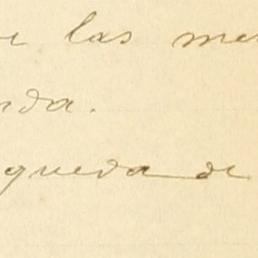 de las me
nda.
queda de